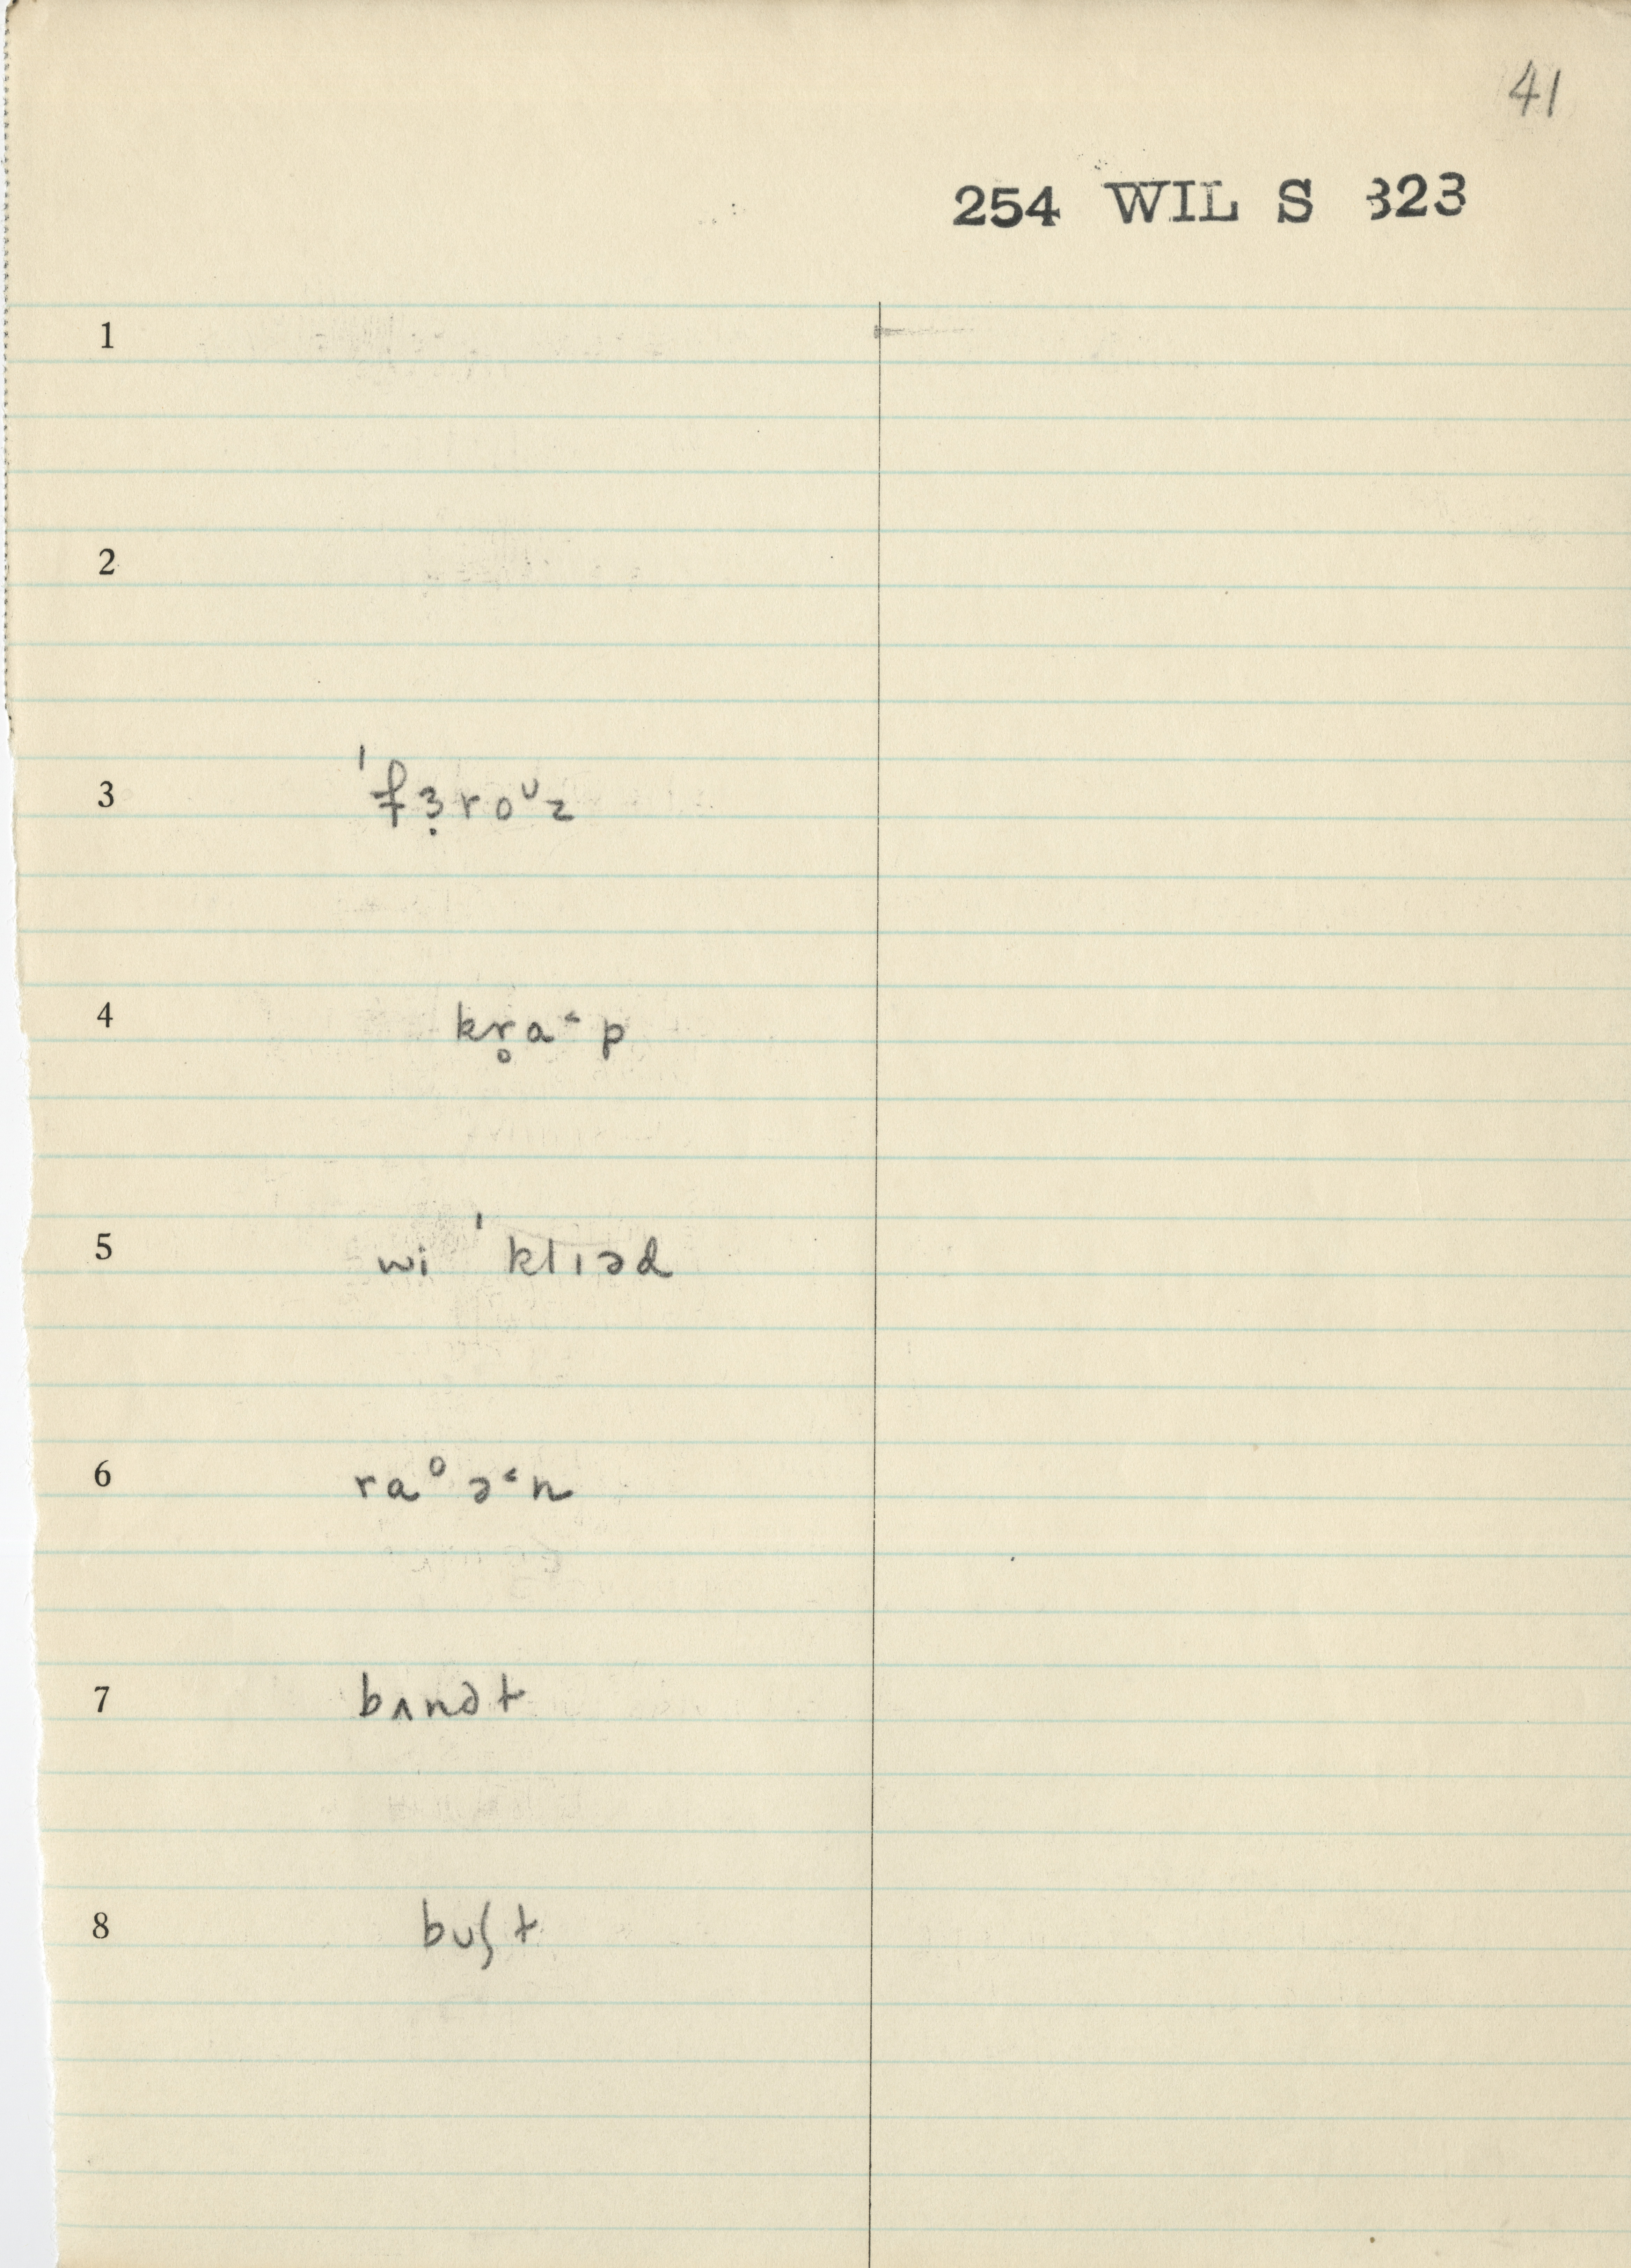 41
254 WIL S 323
1
2
3 ˈfɜ̣roᶷz
4 kr̥a˂p
5 wi ˈklɪəd
6 raᵒə˂n
7 bʌnət
8 buʃt